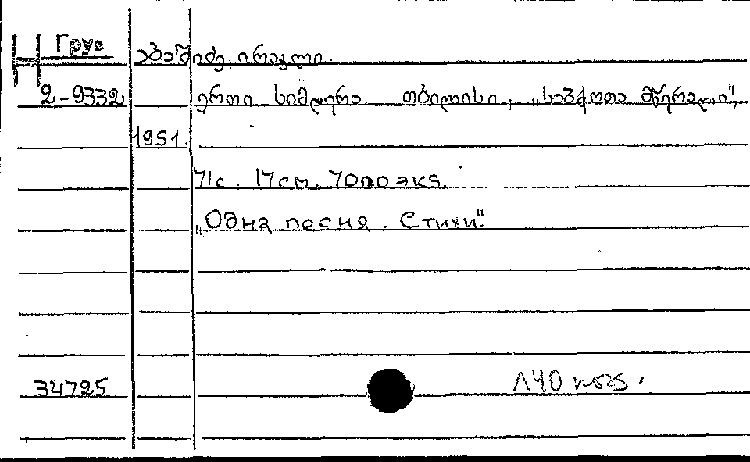 Н Груз
აბაშიძე ირაკლი.
2-9332 ერთი სიმღერა თბილისი, „საბჭოთა მწერალი",
1951.
71с. 17см. 7000 экз.
„Одна песня. Стихи".
34725